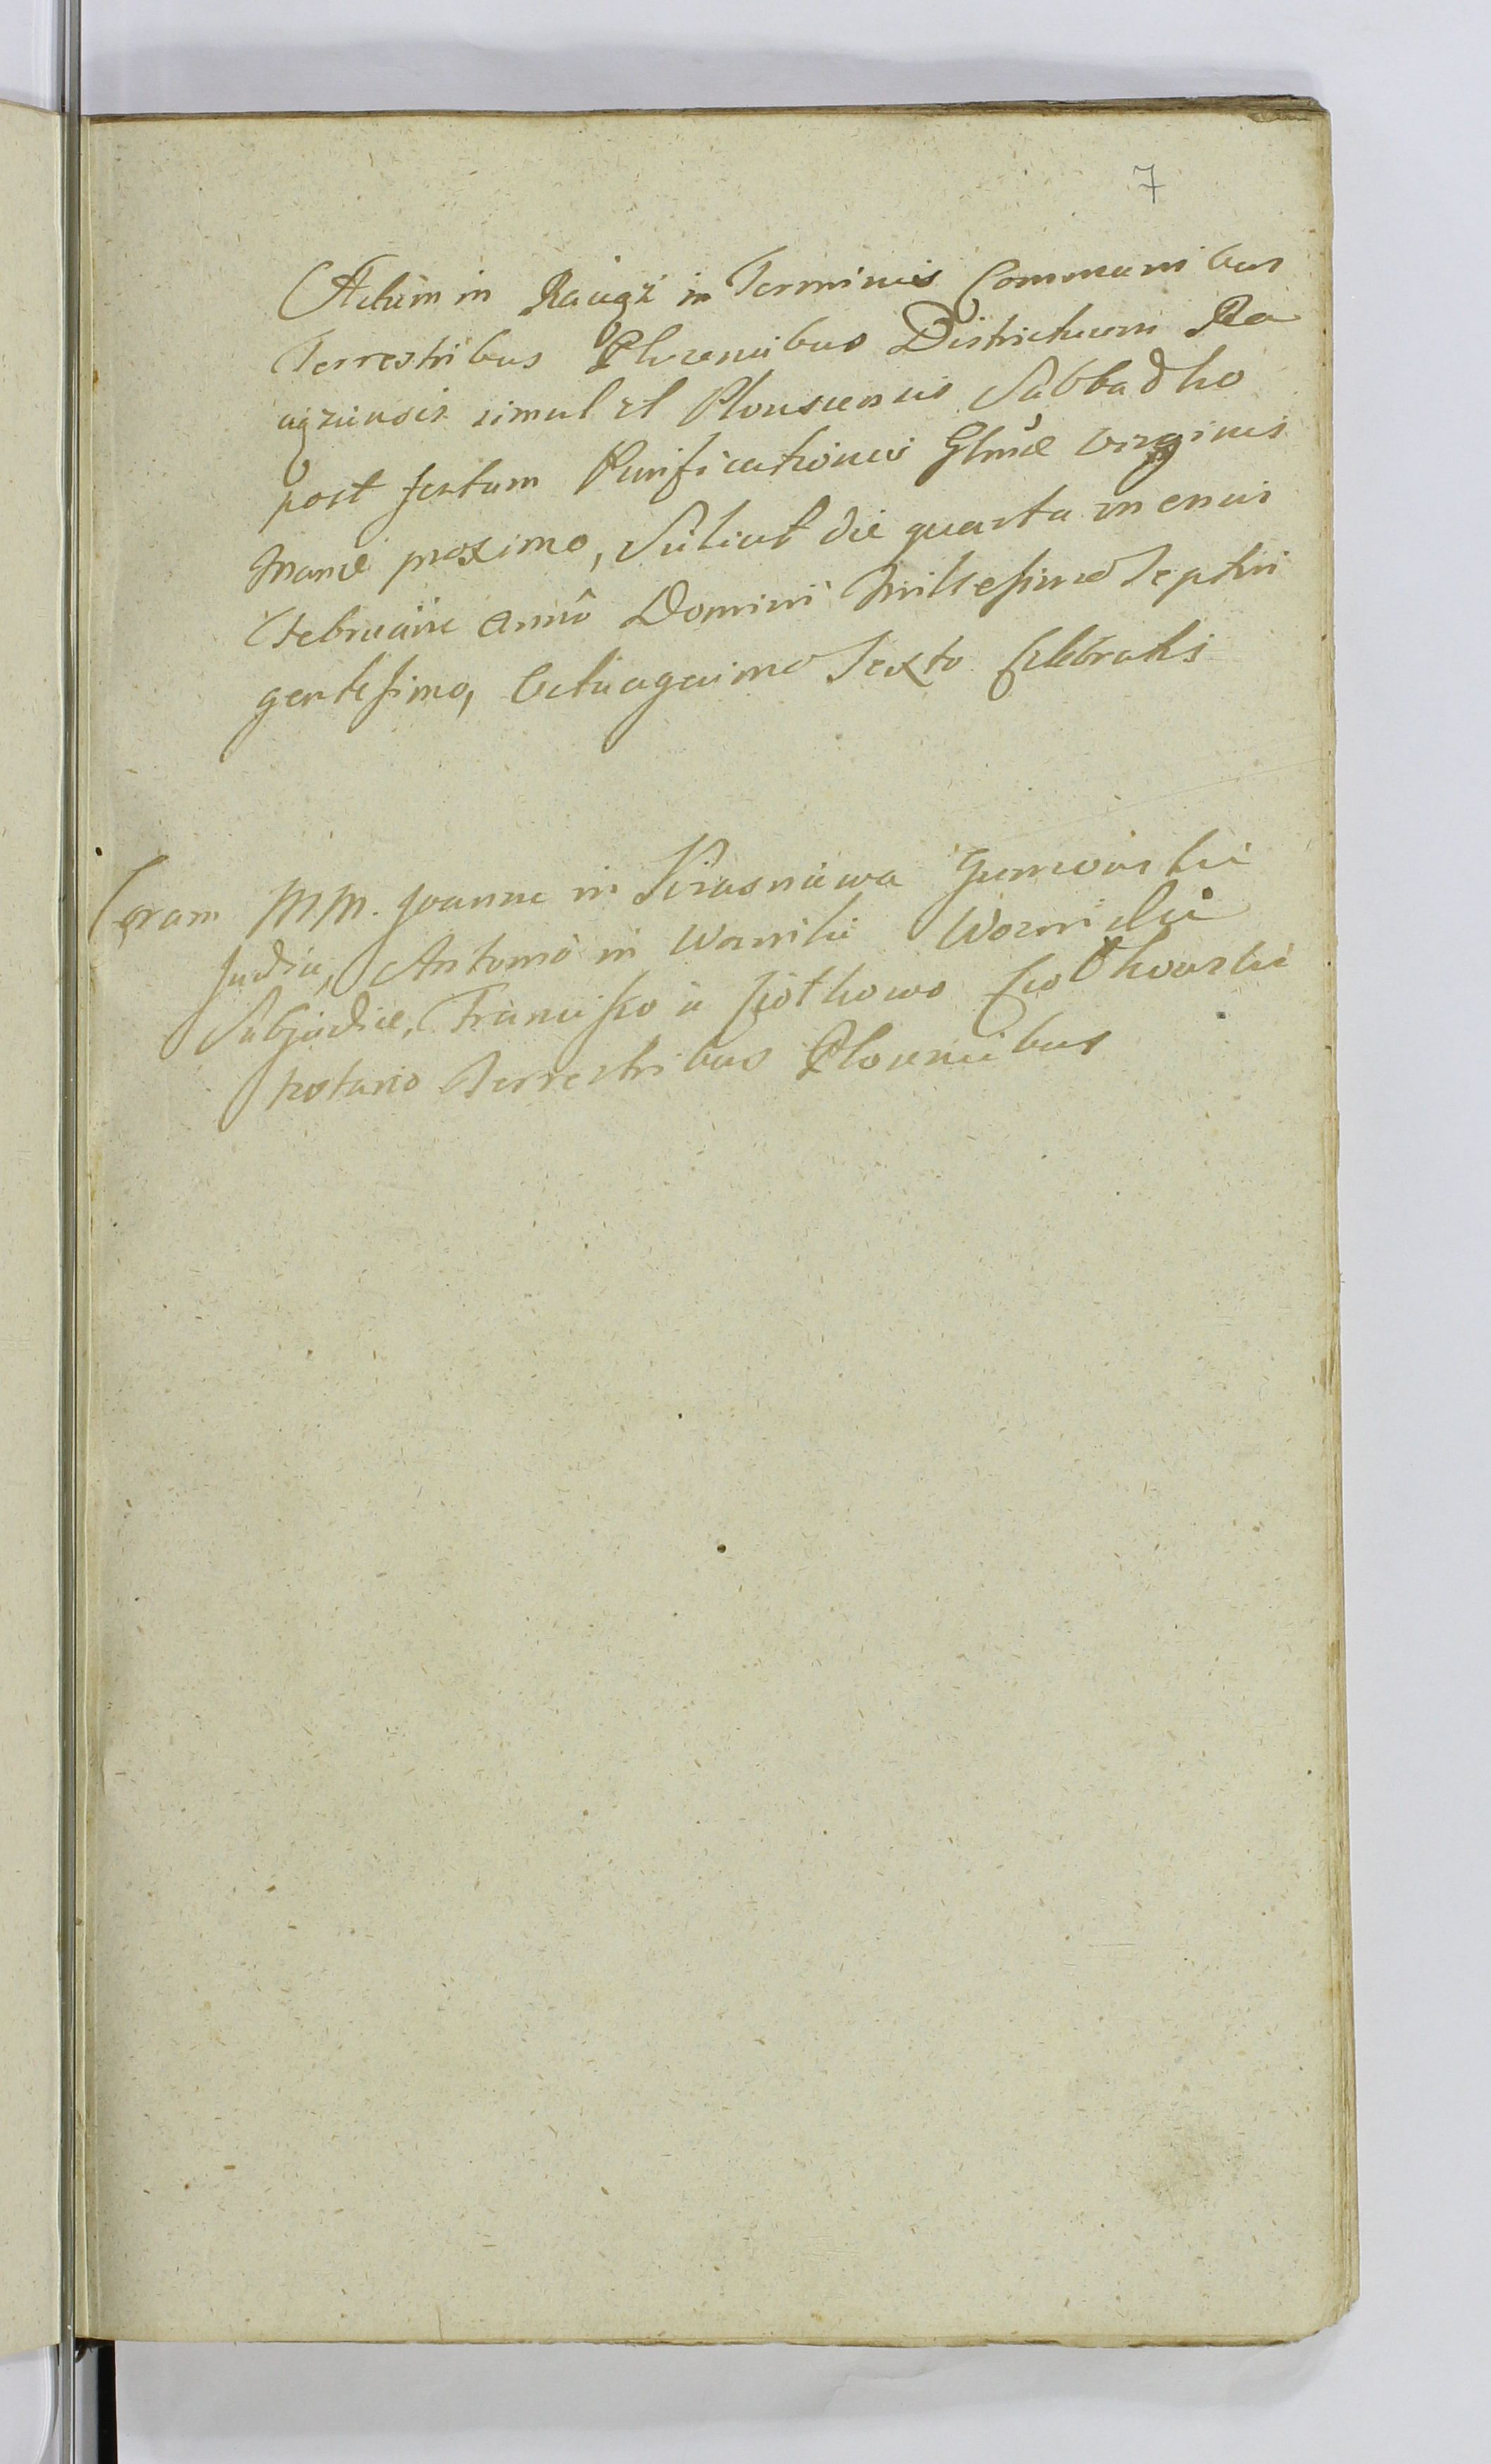 7
Actum in Raciąż in Terminis Communibus
Terrestribus Plocensibus Districtuum Ra
ciązensis simul et Plonscensis Sabbadho
post festum Purificationis Glmae Virginis
Mariae proximo, Scilicet die quarta mensis
Februarii Annô Domini Millesimo Septin
gentesimo, Octuagesimo Sexto Celebratis
Coram MM. Joanne in
Judice, Antonio in
Subjudice, Francisko
Notario Terrestribus Plocensibus